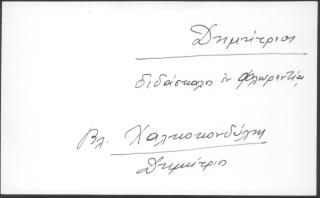 Δημήτριος
διδάσκαλος ἐν Φλωρεντίᾳ
Βλ. Χαλκοκονδύλης
Δημήτριος